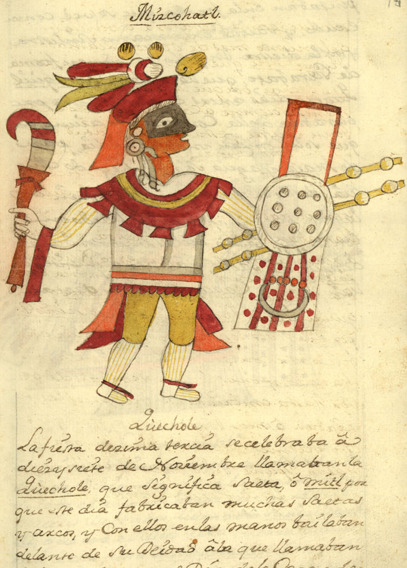 Mixcohatl.
Quechole
La fiesta dezima tercia se celebraba â
diez y siete de Noviembre llamabanla
Quechole, que significa saeta, ô mitl por
que este dia fabricaban muchas saetas
y arcos, y con ellos en las manos bailaban
delante de su Deidad â la que llamaban